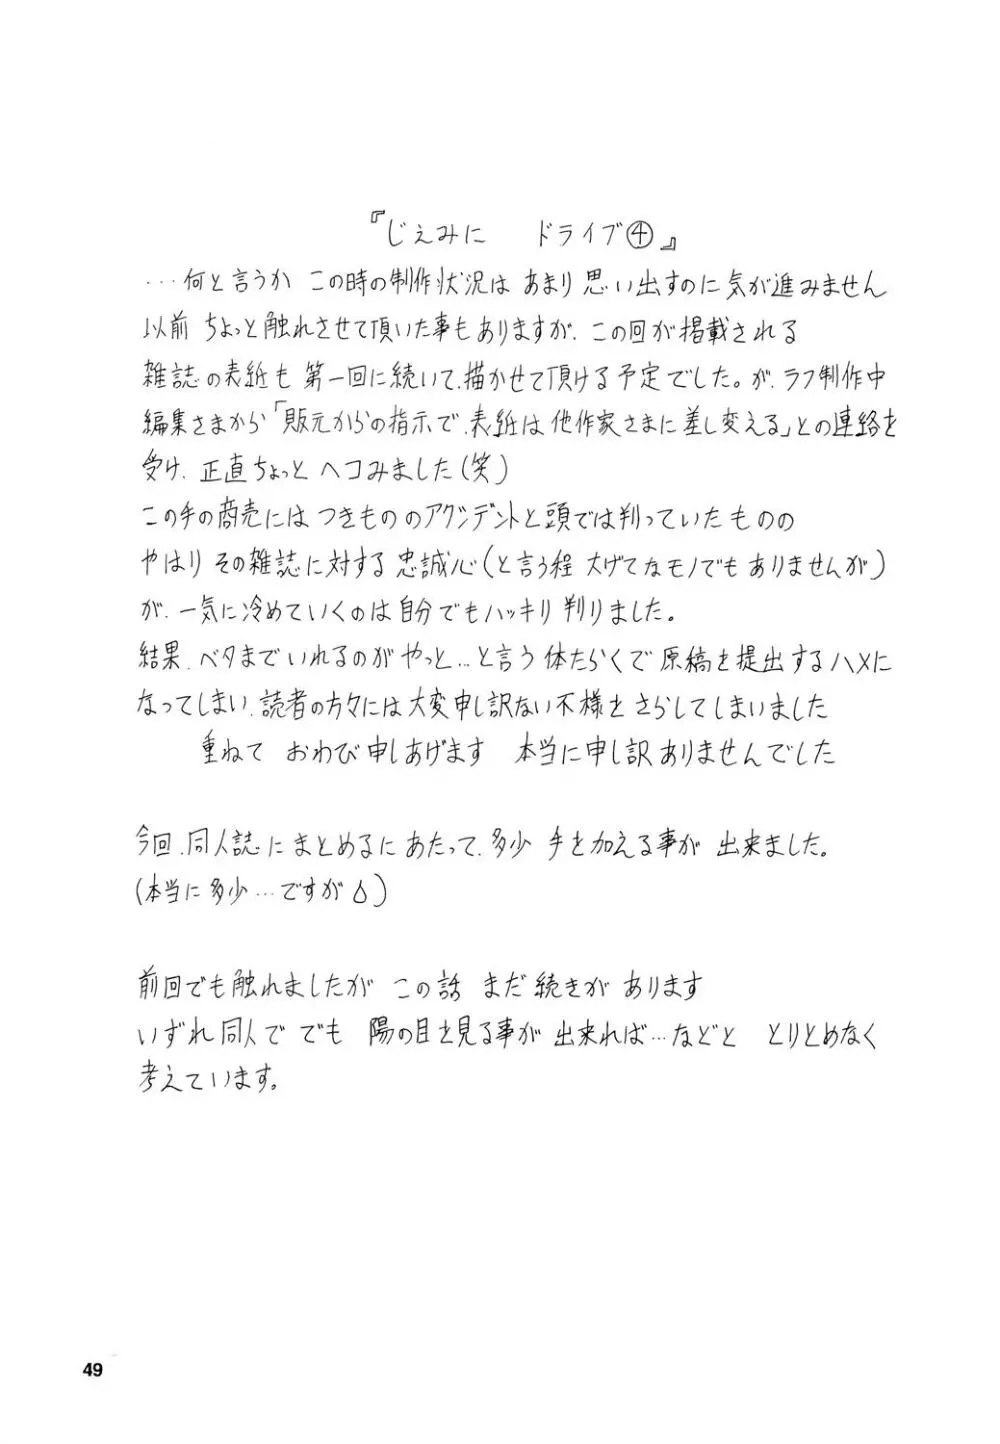 『じぇみに ドライブ④』
…何と言うか この時の制作状況は あまり 思い出すのに 気が進みません
以前 ちょっと触れさせて頂いた事もありますが、この回が掲載される
雑誌の表紙も 第一回に続いて、描かせて頂ける予定でした。が、ラフ制作中
編集さまから「販元からの指示で、表紙は他作家さまに差し変える」との連絡を
受け、正直ちょっと ヘコみました(笑)
この手の商売には つきもののアクシデントと頭では判っていたものの
やはり その雑誌に対する 忠誠心(と言う程 大げてなモノでも ありませんが)
が、一気に冷めていくのは自分でもハッキリ 判りました。
結果、ベタまで いれるのが やっと…と言う 体たらくで 原稿を提出するハメに
なってしまい、読者の方々には 大変申し訳ない不様を さらしてしまいました
重ねて おわび申しあげます 本当に申し訳ありませんでした
今回、同人誌に まとめるに あたって、多少 手を加える事が 出来ました。
(本当に 多少…ですが)
前回でも触れましたが この話 まだ続きが あります
いずれ同人で でも 陽の目を見る事が 出来れば…などと とりとめなく
考えています。
49